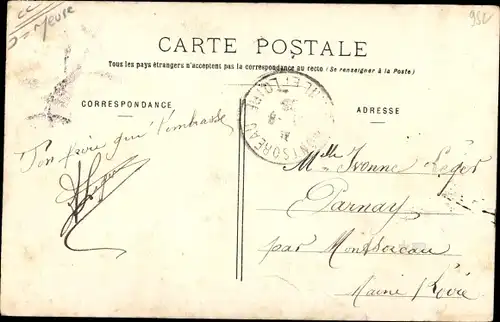 Meuse
95L
CARTE POSTALE
Tous les pays étrangers n'acceptent pas la correspondance au recto (Se renseigner à la Poste)
CORRESPONDANCE
ADRESSE
MONTSOREAU
ET LOIRE
Ton frère qui t'embrasse
Mlle Yvonne Léger
Parnay
par Montsoreau
Maine Loire